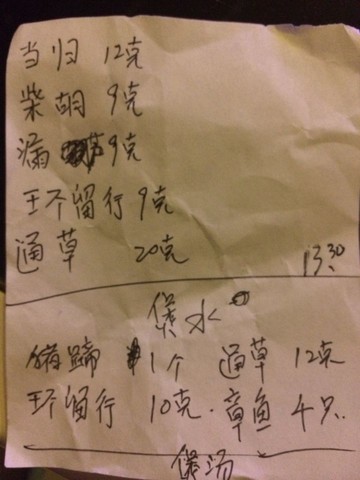 当归 12克
柴胡 9克
漏芦 9克
王不留行 9克
通草 20克
13.30
煲水
猪蹄 1个 通草 12克
王不留行 10克. 章鱼 4只
煲汤